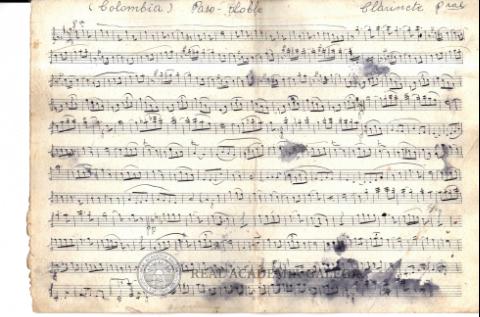 (Colombia) Paso-doble Clarinete pral
REAL ACADEMIA GALEGA